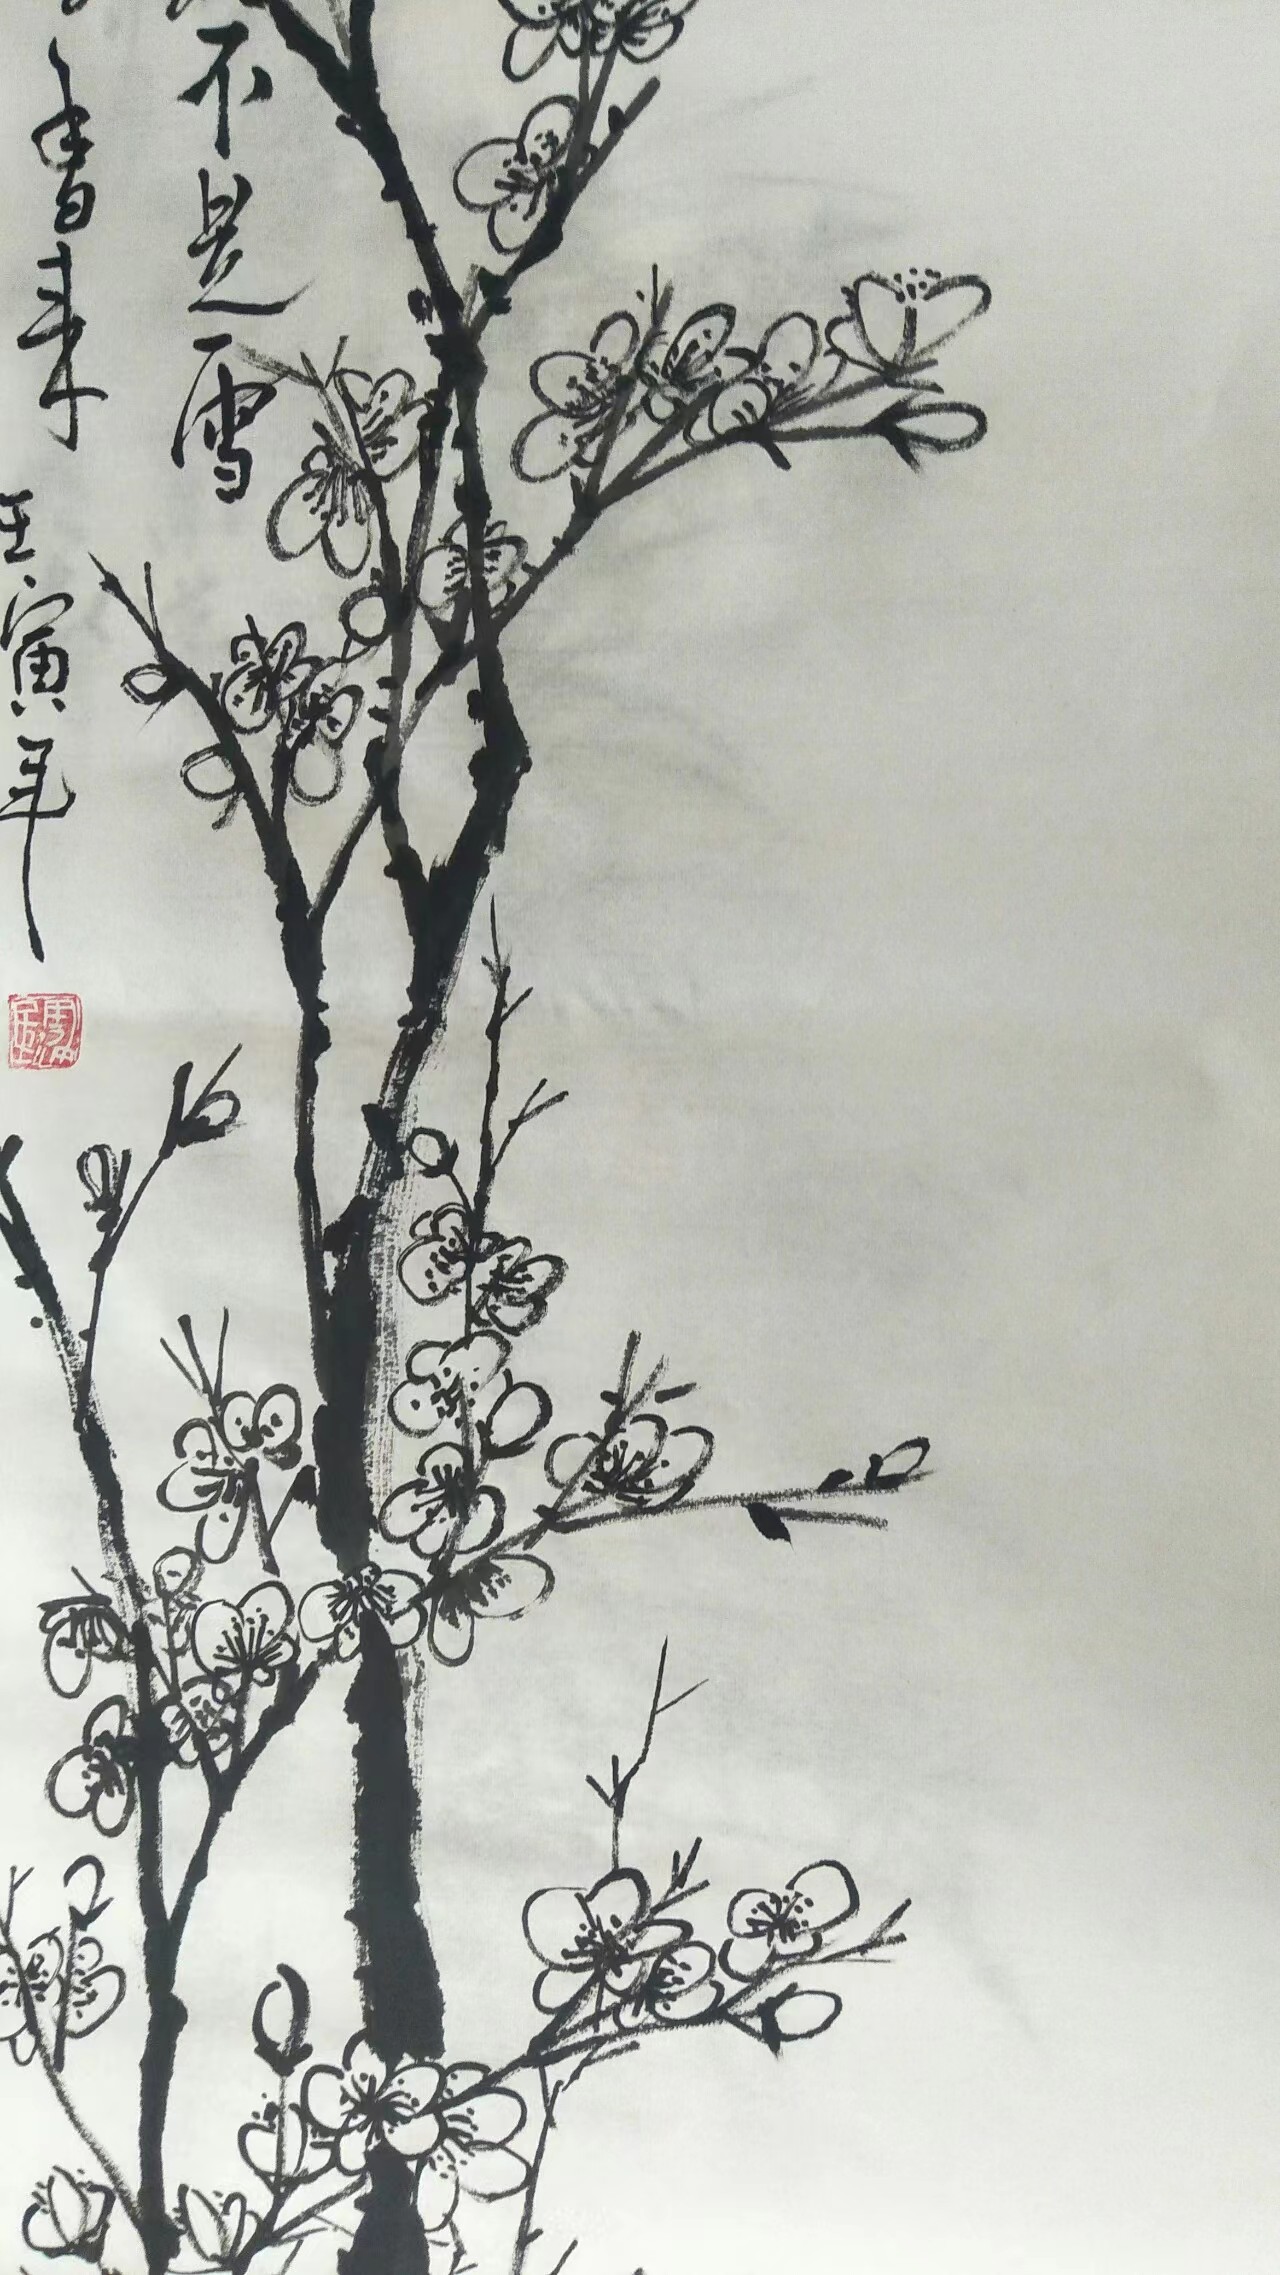 不是雪
香来
壬寅年